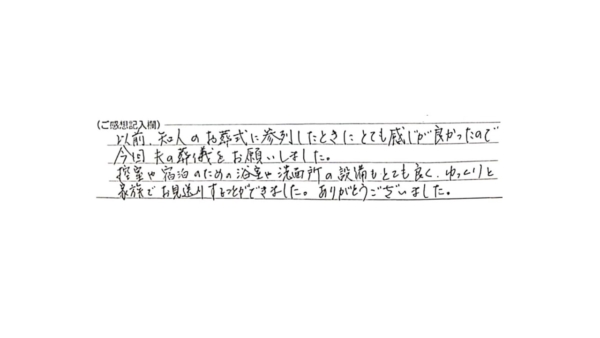 (ご感想記入欄)
以前、知人のお葬式に参列したときにとても感じが良かったので
今回夫の葬儀をお願いしました。
控室や宿泊のための浴室や洗面所の設備もとても良く、ゆっくりと
家族でお見送りすることができました。ありがとうございました。